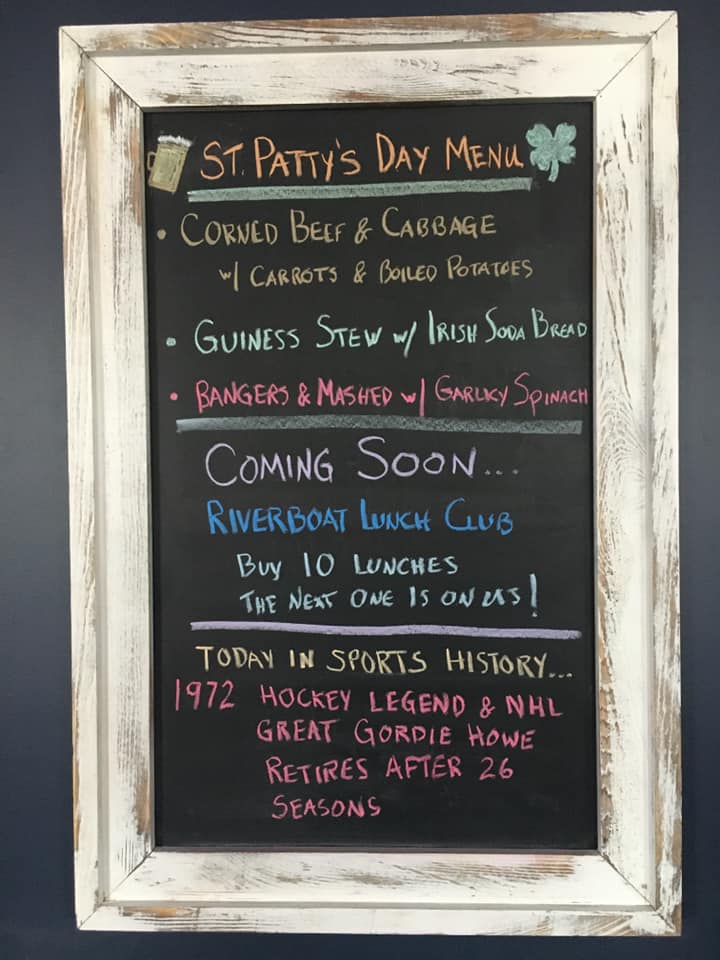 St. Patty's Day Menu
• Corned Beef & Cabbage
w/ Carrots & Boiled Potatoes
• Guiness Stew w/ Irish Soda Bread
• Bangers & Mashed w/ Garlicy Spinach
Coming Soon...
Riverboat Lunch Club
Buy 10 Lunches
The Next One Is On Us!
Today in Sports History...
1972 Hockey Legend & NHL
Great Gordie Howe
Retires After 26
Seasons